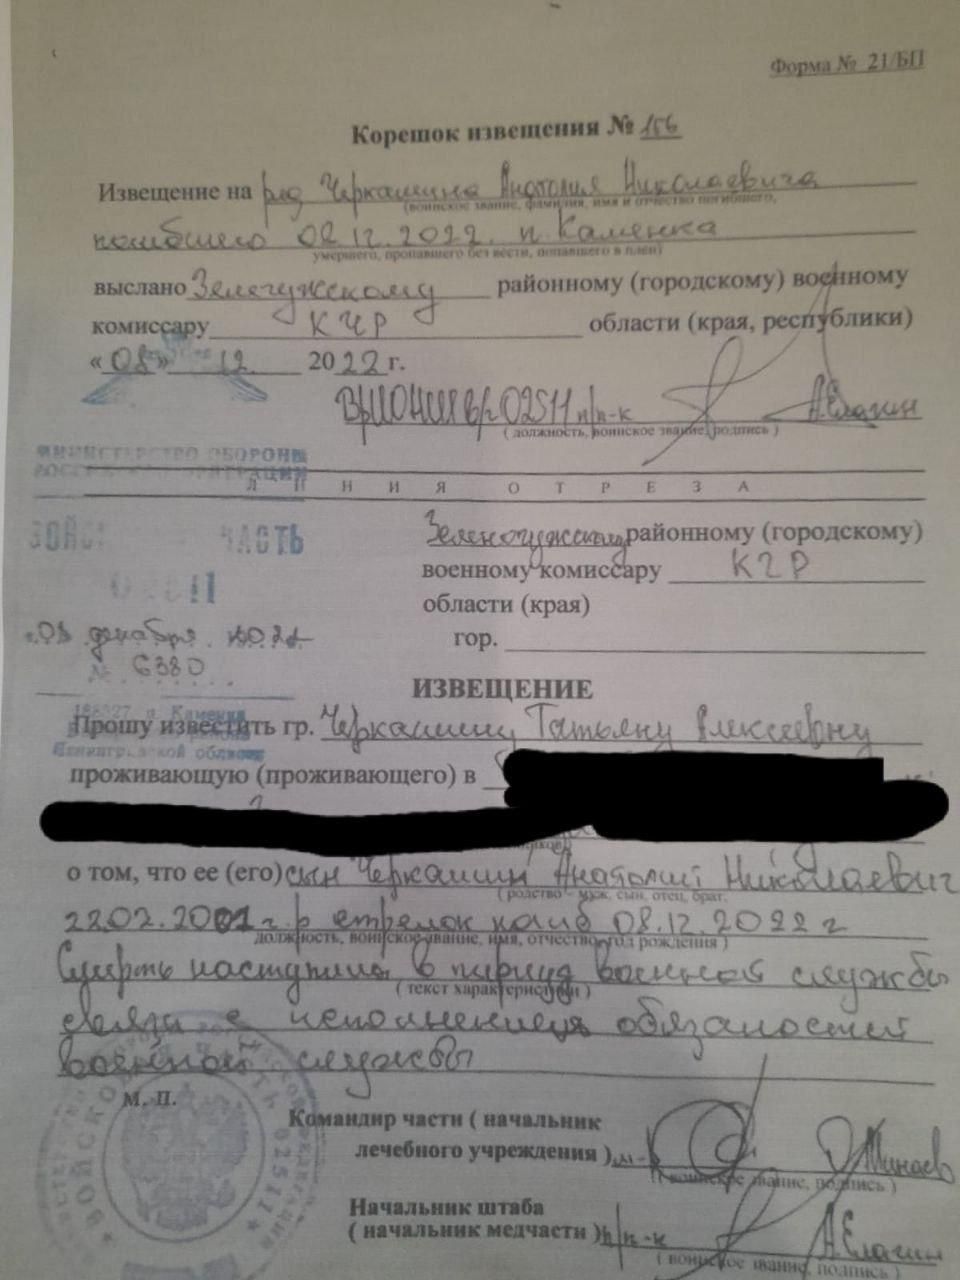 Форма № 21/БП
Корешок извещения № 156
Извещение на ряд Черкашина Анатолия Николаевича
(воинское звание, фамилия, имя и отчество погибшего,
погибшего 08.12.2022. п. Каменка
умершего, пропавшего без вести, попавшего в плен)
выслано Зеленчужскому районному (городскому) военному
комиссару КЧР области (края, республики)
«08» 12 2022 г.
ВРИО НШ в/ч 02511 п/п-к А.Елагин
( должность, воинское звание, подпись )
МИНИСТЕРСТВО ОБОРОНЫ
РОССИЙСКОЙ ФЕДЕРАЦИИ
Л И Н И Я О Т Р Е З А
ВОЙСКОВАЯ ЧАСТЬ
02511
Зеленочужскому районному (городскому)
военному комиссару КЧР
области (края)
гор.
«08 декабря 2022
№ 6380
188827 п. Каменка
Ленинградской области
ИЗВЕЩЕНИЕ
Прошу известить гр. Черкашину Татьяну Алексеевну
проживающую (проживающего) в
о том, что ее (его) сын Черкашин Анатолий Николаевич
( родство – муж, сын, отец, брат,
22.02.2001 г.р стрелок погиб 08.12.2022 г
должность, воинское звание, имя, отчество, год рождения )
Смерть наступила в период военной службы
( текст характеристики )
связи с исполнением обязаностей
военной службы
м. п.
ВОЙСКОВАЯ ЧАСТЬ 02511
Командир части ( начальник
лечебного учреждения ) м-р Д.Минаев
( воинское звание, подпись )
Начальник штаба
( начальник медчасти ) п/п-к А.Елагин
( воинское звание, подпись )